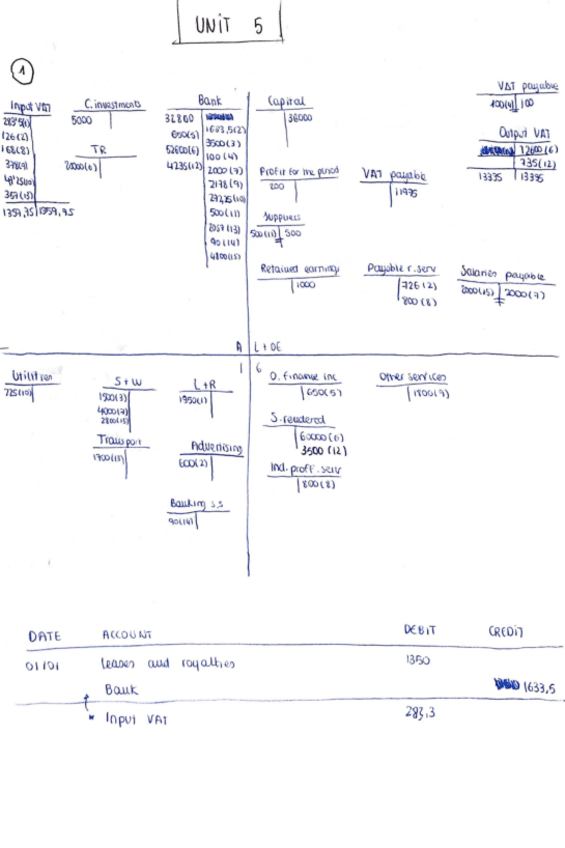 UNIT 5
1
Input VAT
283'5(1)
126(2)
168(8)
378(9)
357(13)
1359,75 1359,75
C. investments
5000
TR
20000(6)
Bank
32800
650(5)
52600(6)
4235(12)
1633,5(2)
3500(3)
100(4)
2000(7)
2178(9)
272,25(10)
500(11)
2057(13)
90(14)
4800(15)
Capital
36000
Profit for the period
200
Suppliers
500(11) 500
Retained earnings
1000
VAT payable
11975
Payable r. serv
726(2)
800(8)
VAT payable
100(4) 100
Output VAT
12600(6)
735(12)
13335 13335
Salaries payable
2000(15) 2000(7)
A L+OE
6
Utilities
225(10)
S+W
1500(3)
4000(7)
2800(15)
L+R
1350(1)
Transport
1700(13)
Advertising
600(2)
Banking s.s
90(14)
O. finance inc
650(5)
S. rendered
60000(6)
3500(12)
Ind. proff. serv
800(8)
Other services
1800(9)
DATE ACCOUNT DEBIT CREDIT
01/01 leases and royalties 1350
Bank 1633,5
* Input VAT 283,3